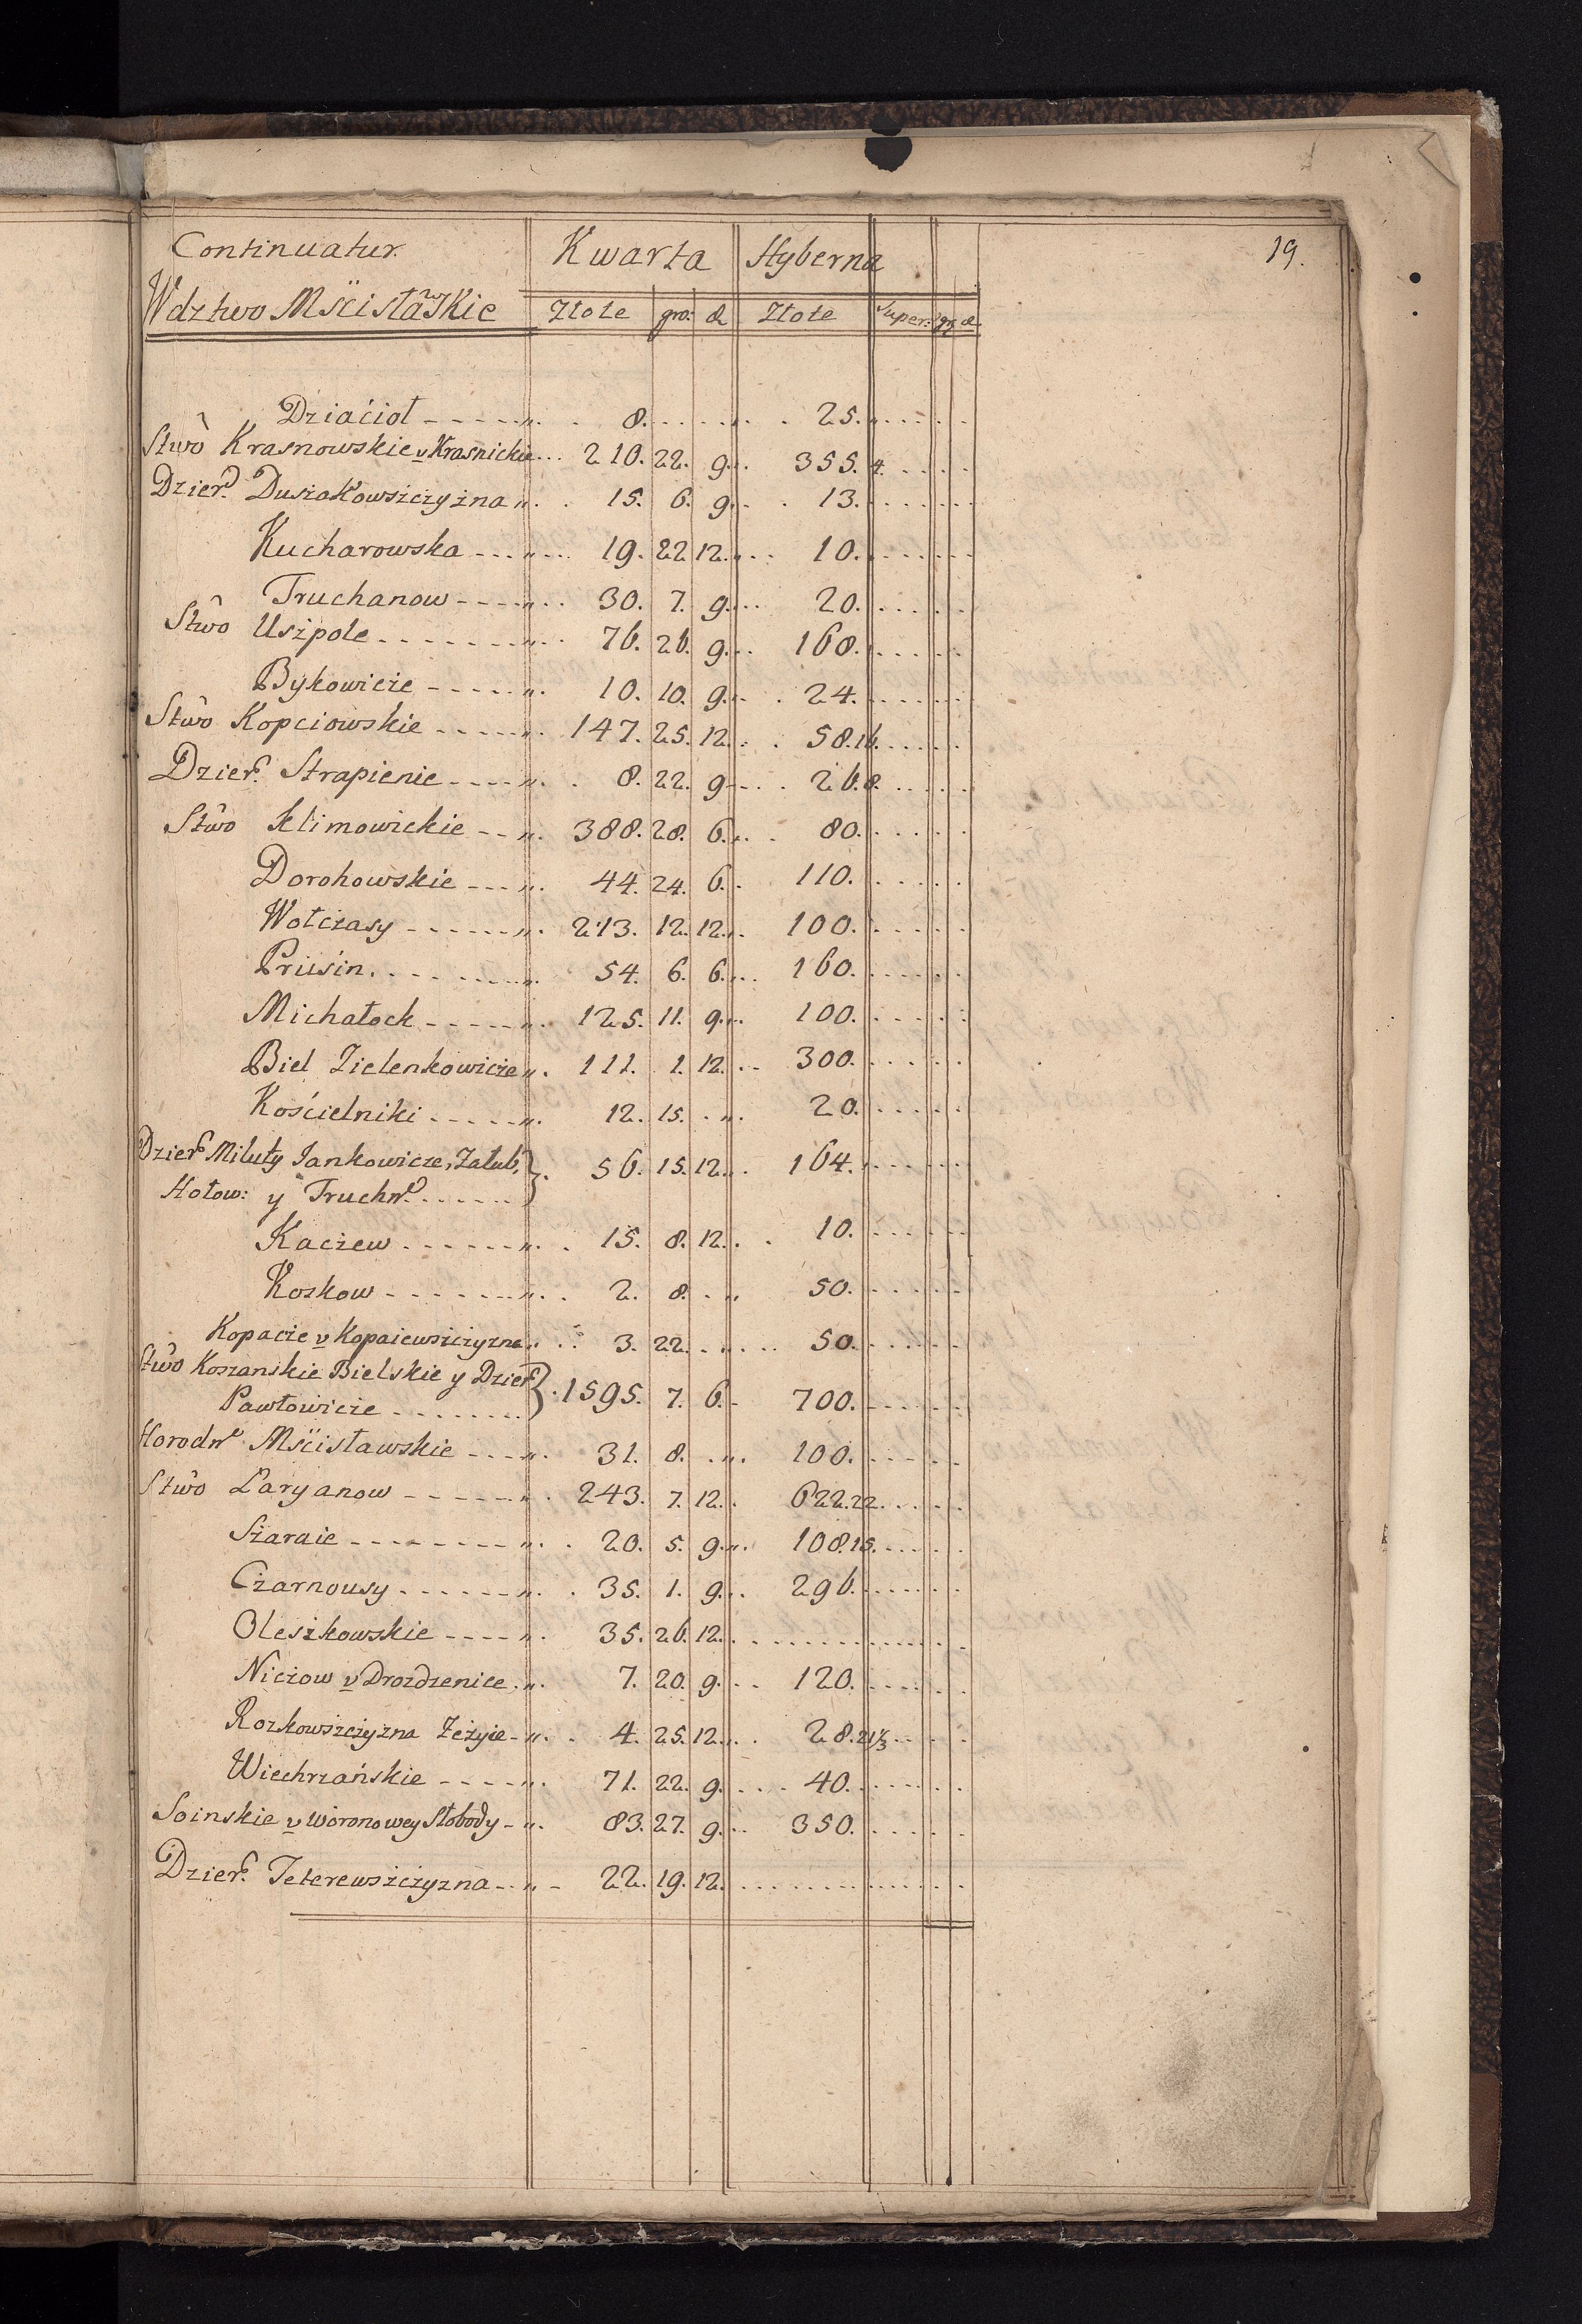 19.
Continuatur. Kwarta Hyberna
Wdztwo Mścisłãwskie Złote gro: d Złote Super: gr. d.
Dziáćioł 8. 25.
Stwô Krasnowskie v Krasnickie 210. 22. 9. 355. 4.
Dzierẽ. Duszakowszczyzna 15. 6. 9. 13.
Kucharowska 19. 22. 12. 10.
Truchanow 30. 7. 9. 20.
Stŵo Uszpole 76. 26. 9. 168.
Bykowicze 10. 10. 9. 24.
Stŵo Kopciowskie 147. 25. 12. 58. 16.
Dzierẽ. Strapienie 8. 22. 9. 26. 8.
Stŵo Klimowickie 388. 28. 6. 80.
Dorohowskie 44. 24. 6. 110.
Wołczasy 213. 12. 12. 100.
Priiśin. 54. 6. 6. 160.
Michałock 125. 11. 9. 100.
Biel Zielenkowicze 111. 1. 12. 300.
Kościelniki 12. 15. 20.
Dzierẽ Miluty Jankowicze, Załub,
Hołow: y Truchnẽ. 56. 15. 12. 164.
Kaczew 15. 8. 12. 10.
Koskow 2. 8. 50.
Kopacze v Kopaiewszczyzna 3. 22. 50.
Stŵo Koszanskie Bielskie y Dzierẽ
Pawłowicze 1595. 7. 6. 700.
Horodnẽ Mścisławskie 31. 8. 100.
Stŵo Laryanow 243. 7. 12. 622. 22.
Szaraie 20. 5. 9. 108. 15.
Czarnousy 35. 1. 9. 296.
Oleszkowskie 35. 26. 12.
Niczow v Drozdzenice 7. 20. 9. 120.
Rozkowszczyzna Zeżyie 4. 25. 12. 28. 21⅓
Wiechrzańskie 71. 22. 9. 40.
Soinskie v Woronowey Słobody 83. 27. 9. 350.
Dzierẽ. Teterewszczyzna 22. 19. 12.